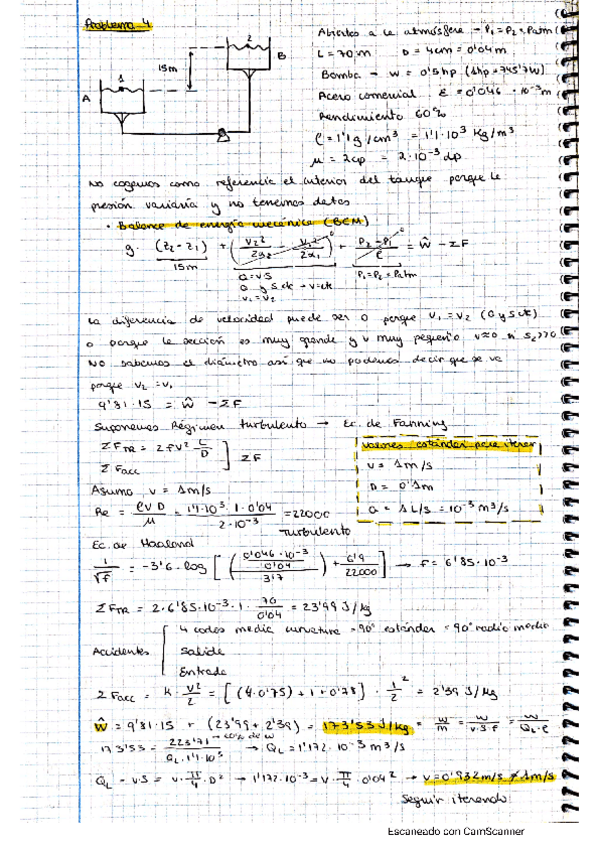 Problema 4
Abiertos a la atmósfera → P1 = P2 = Patm
L = 70 m D = 4cm = 0'04 m
Bomba → W = 0'5hp (1hp = 745'7W)
Acero comercial ε = 0'046 · 10⁻³ m
Rendimiento 60%
ρ = 1'1 g/cm³ = 1'1·10³ Kg/m³
μ = 2cp = 2·10⁻³ dp
1
2
15m
A
B
No cogemos como referencia el interior del tanque porque la
presión variaría y no tenemos datos
• Balance de energía mecánica (BEM)
g · (z2 - z1) + (V2²/2α2 - V1²/2α1) + (P2 - P1)/ρ = Ŵ - ΣF
15m
Q = v·S
Q y S ctk → v = ctk
v1 = v2
P1 = P2 = Patm
La diferencia de velocidad puede ser 0 porque v1 = v2 (Q y S ctk)
o porque la sección es muy grande y v muy pequeño v≈0 si S >>0
No sabemos el diámetro así que no podemos decir que se va
porque v2 = v1
9'81·15 = Ŵ - ΣF
Suponemos Régimen turbulento → Ec. de Fanning
ΣFTR = 2fV² L/D
ΣFacc
ΣF
valores estándar para iterar
v = 1m/s
D = 0'1m
Q = 1 L/s = 10⁻³ m³/s
Asumo v = 1m/s
Re = ρVD/μ = 1'1·10³·1·0'04/2·10⁻³ = 22000
Turbulento
Ec. de Haaland
1/√f = -3'6·log [((0'046·10⁻³/0'04)/3'7) + 6'9/22000] → f = 6'85·10⁻³
ΣFTR = 2·6'85·10⁻³·1· 70/0'04 = 23'99 J/kg
Accidentes
4 codos media curvatura = 90° estándar = 90° radio medio
Salida
Entrada
ΣFacc = K · V²/2 = [(4·0'75) + 1 + 0'78] · 1²/2 = 2'39 J/Kg
Ŵ = 9'81·15 + (23'99 + 2'39) = 173'53 J/kg = W/m = W/v·S·ρ = W/QL·ρ
173'53 = 223'71/QL·1'1·10³ → QL = 1'172·10⁻³ m³/s
QL = v·S = v·π/4·D² → 1'172·10⁻³ = v·π/4·0'04² → v = 0'932m/s ≠ 1m/s
Seguir iterando
Escaneado con CamScanner